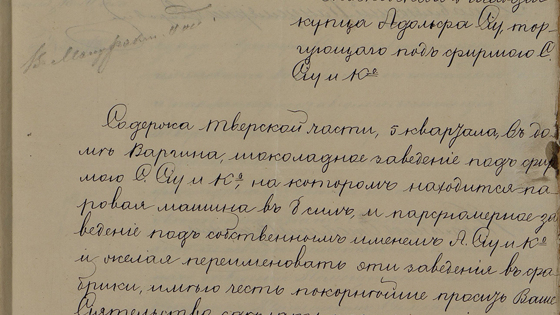 купца Адольфа Сіу тор-
гующаго подъ фирмою С.
Сіу и Кº
Содержа Тверской части, 5 квартала, въ до-
мѣ Варгина, шоколадное заведеніе подъ фир
мою С. Сіу и Кº, на которомъ находится па
ровая машина въ 6 силъ, и парфюмерное за
веденіе подъ собственнымъ именемъ А. Сіу и Кº
и желая переименовать эти заведенія въ фа
брики, имѣю честь покорнѣйше просить Ваше
Сіятельство